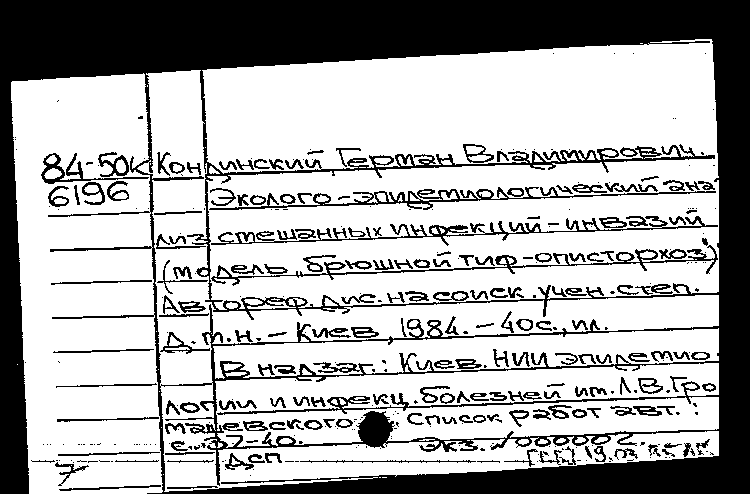 84-50к Кондинский, Герман Владимирович.
6196 Эколого-эпидемиологический ана
лиз смешанных инфекций-инвазий
(модель „брюшной тиф-описторхоз“)
Автореф. дис. на соиск. учен. степ.
д.м.н. - Киев, 1984. - 40с., ил.
В надзаг.: Киев. НИИ эпидемио
логии и инфекц. болезней им. Л.В.Гро
машевского Список работ авт.:
с. 37-40. экз. №000002.
7 Дсп 19.03